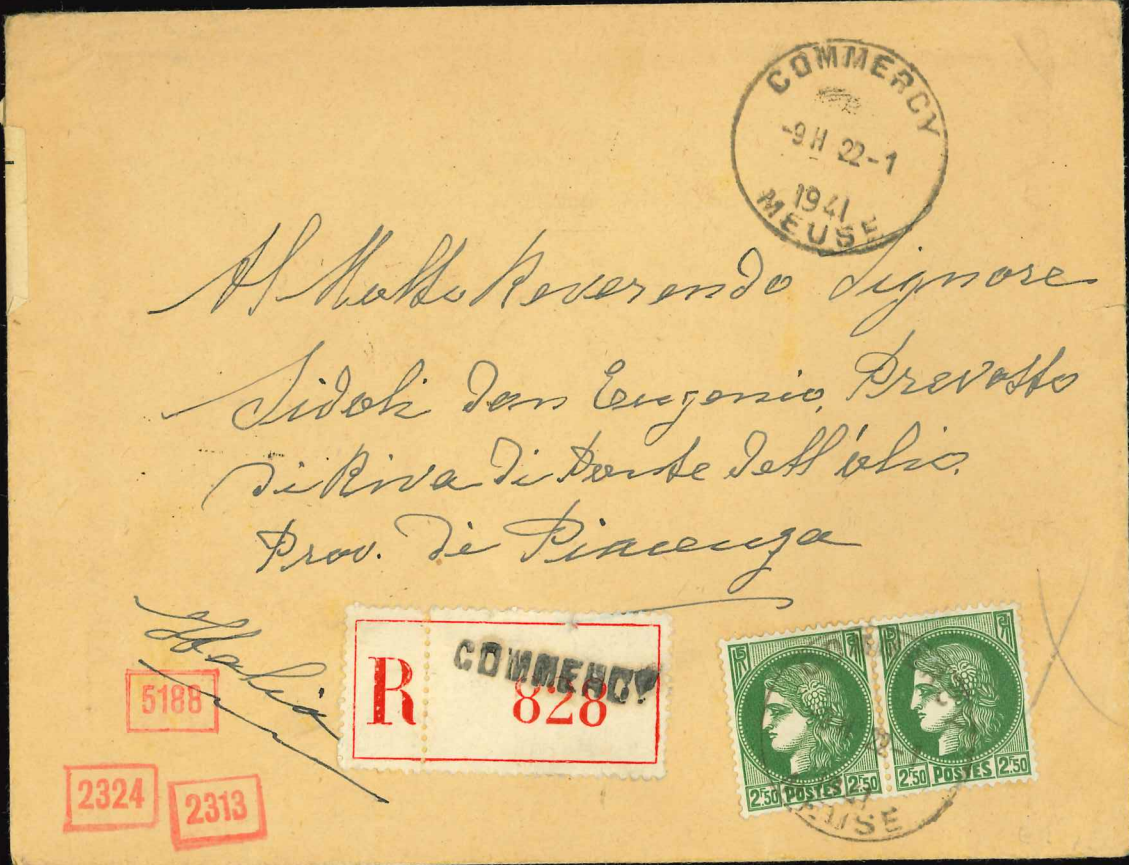 COMMERCY
-9H 22-1
1941
MEUSE
Al Molto Reverendo Signore
Sidoli Don Eugenio, Prevosto
di Riva di Ponte dell'olio.
Prov. di Piacenza
Italia
R COMMERCY 828
5188
2324 2313
2F,50 POSTES 2F,50
2F,50 POSTES 2F,50
MEUSE